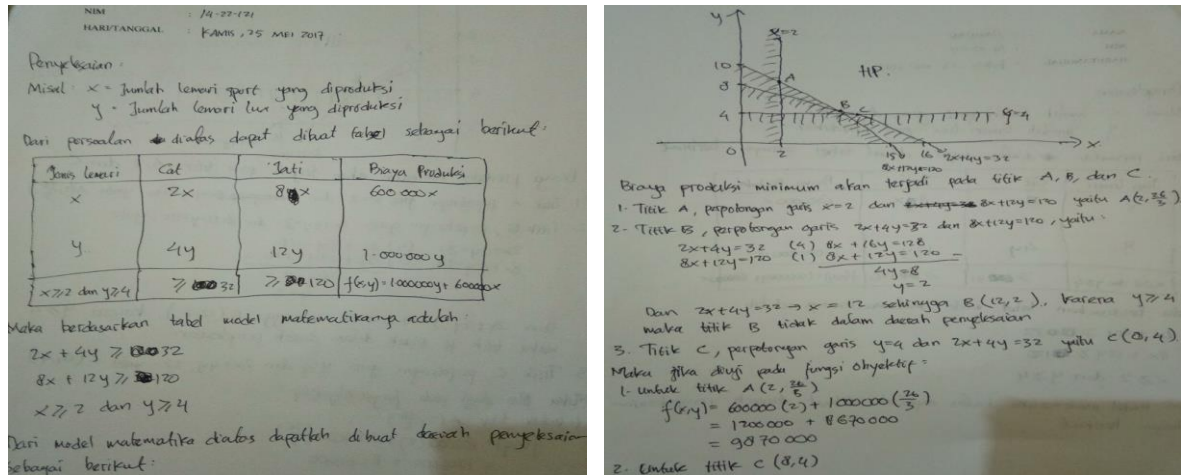 NIM : 14-22-121
HARI/TANGGAL : KAMIS, 25 MEI 2017
Penyelesaian:
Misal: x = Jumlah lemari sport yang diproduksi
y = Jumlah lemari lux yang diproduksi
Dari persoalan diatas dapat dibuat tabel sebagai berikut:
Jenis lemari Cat Jati Biaya Produksi
x 2x 8x 600000x
y 4y 12y 1.000.000y
x≥2 dan y≥4 ≥ 32 ≥ 120 f(x,y)=1000000y+600000x
Maka berdasarkan tabel model matematikanya adalah:
2x + 4y ≥ 32
8x + 12y ≥ 120
x≥2 dan y≥4
Dari model matematika diatas dapatlah dibuat daerah penyelesaian
sebagai berikut:
y
x=2
10
A
HP.
8
B C
4
y=4
0 2 15 16 2x+4y=32 x
8x+12y=120
Biaya produksi minimum akan terjadi pada titik A, B, dan C.
1. Titik A, perpotongan garis x=2 dan 8x+12y=120 yaitu A(2, 26/3)
2. Titik B, perpotongan garis 2x+4y=32 dan 8x+12y=120, yaitu:
2x+4y=32 (4) 8x + 16y = 128
8x+12y=120 (1) 8x + 12y = 120 -
4y=8
y=2
Dan 2x+4y=32 → x = 12 sehingga B(12,2), karena y≥4
maka titik B tidak dalam daerah penyelesaian
3. Titik C, perpotongan garis y=4 dan 2x+4y=32 yaitu C(8,4)
Maka jika diuji pada fungsi obyektif:
1. untuk titik A(2, 26/3)
f(x,y) = 600000(2) + 1000000(26/3)
= 1200000 + 8670000
= 9870000
2. Untuk titik C (8,4)